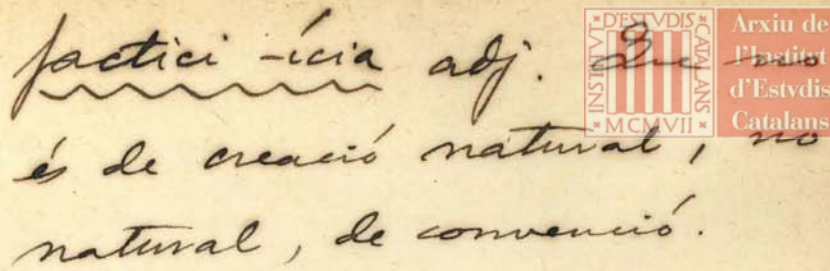 factici -ícia adj. Que no
és de creació natural, no
natural, de convenció.
INSTITVT D'ESTVDIS CATALANS
MCMVII
Arxiu de
l'Institut
d'Estvdis
Catalans